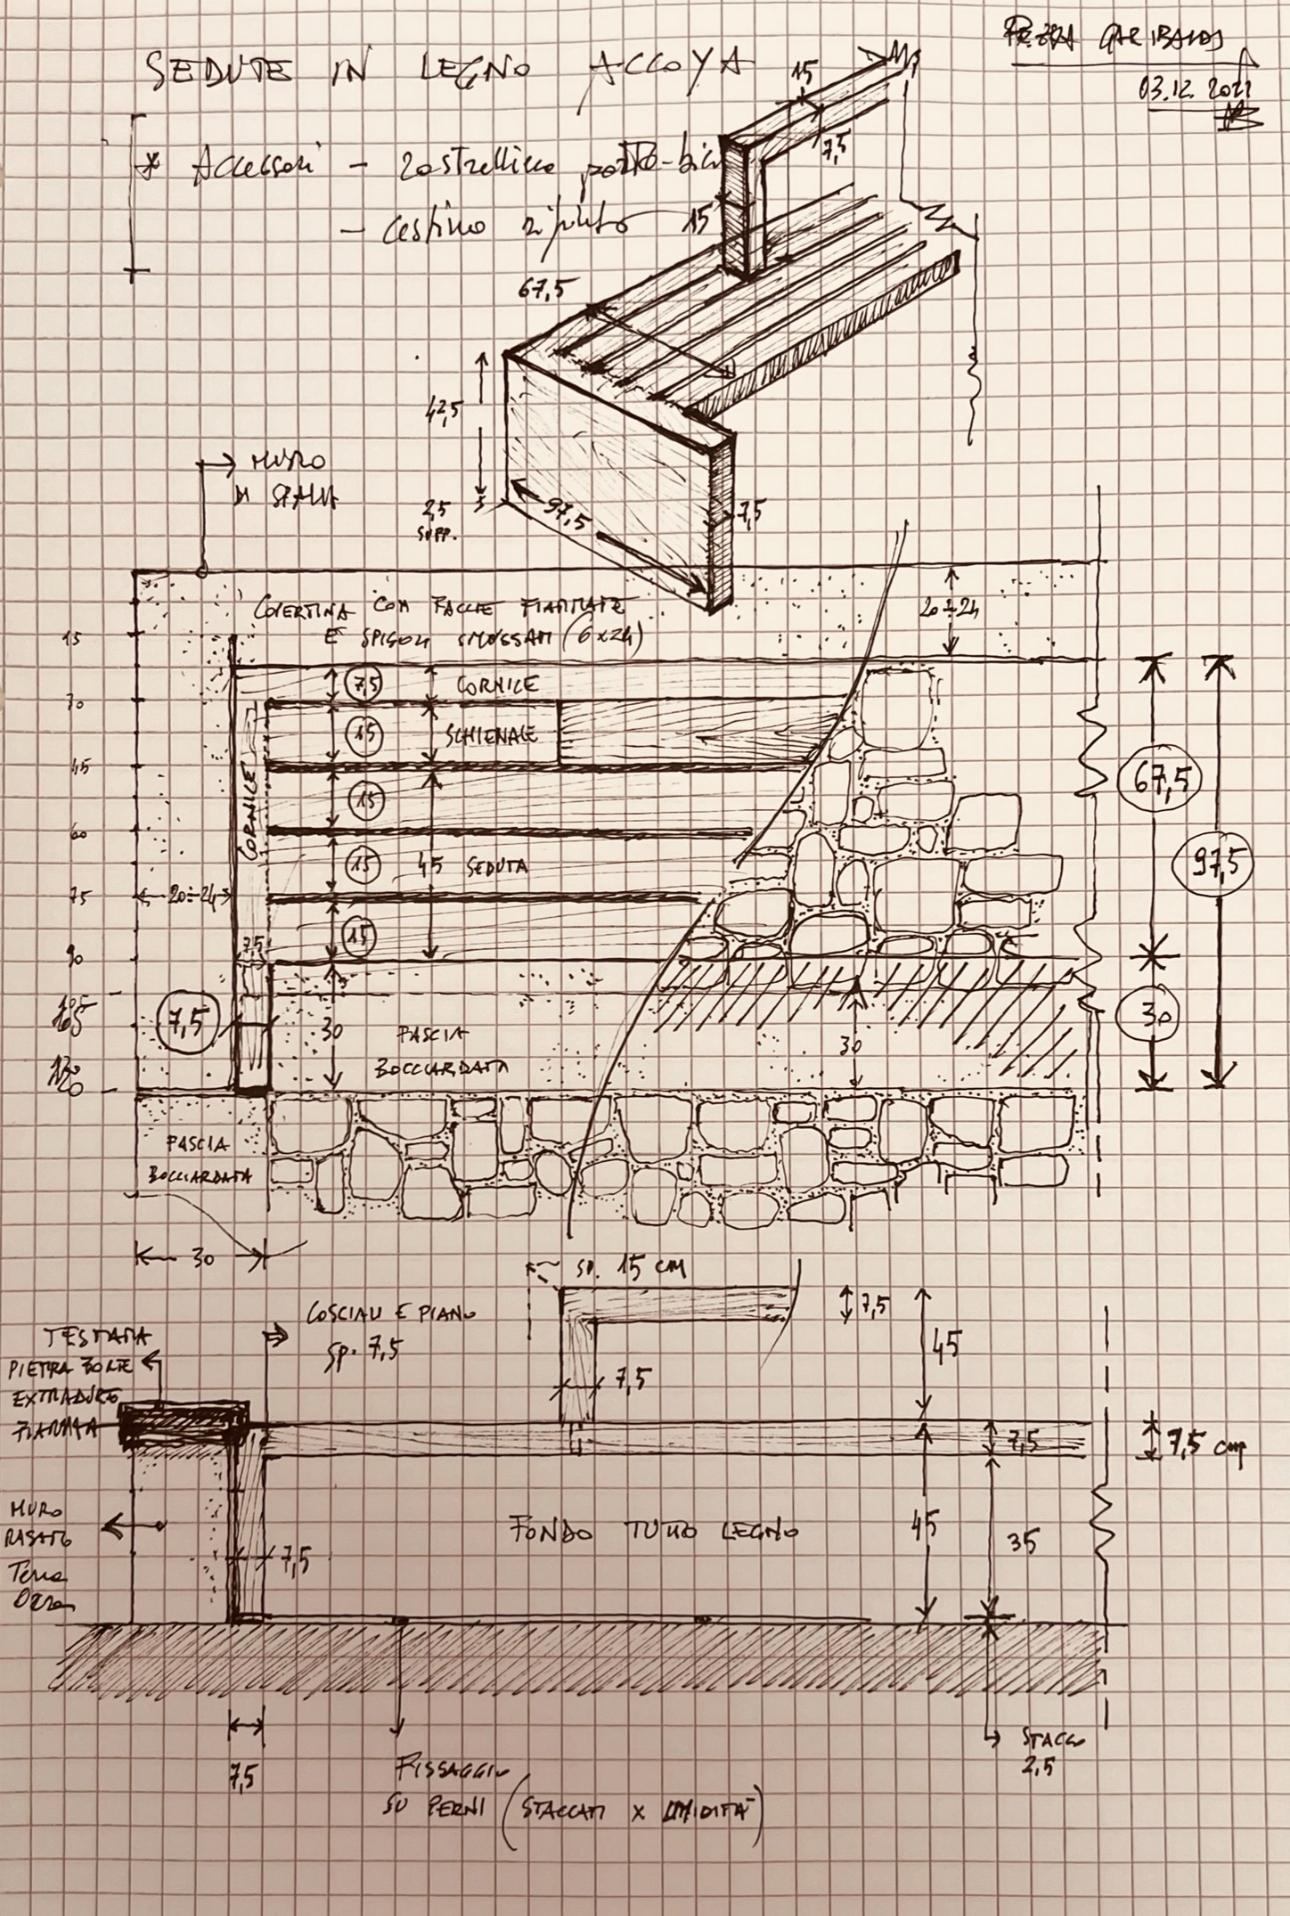 SEDUTE IN LEGNO ACCOYA
GARIBALDI
03.12.2021
* Accessori - rastrelliera porta-bici
- cestino rifiuto
15
7,5
15
67,5
42,5
2,5
SUPP.
97,5
7,5
MURO
DI SPALLA
COPERTINA CON FACCE FIAMMATE
E SPIGOLI SMUSSATI (6x24)
20÷24
15
30
45
60
75
90
105
120
7,5
CORNICE
15
SCHIENALE
15
15
45 SEDUTA
15
CORNICE
20÷24
7,5
7,5
30
FASCIA
BOCCIARDATA
30
67,5
97,5
30
FASCIA
BOCCIARDATA
30
SP. 15 CM
COSCIALI E PIANO
SP. 7,5
7,5
45
7,5
TESTATA
PIETRA FORTE
EXTRADURO
FIAMMATA
7,5
7,5 cm
MURO
RASATO
Terra
Ocra
7,5
FONDO TUTTO LEGNO
45
35
7,5
FISSAGGIO
SU PERNI (STACCATI X UMIDITÀ)
STACCO
2,5